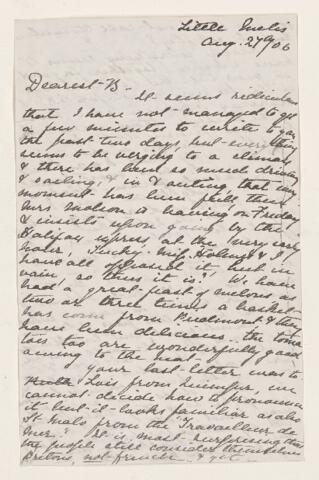 Little Metis
Aug. 27th/06
Dearest B-
It seems ridiculous
that I have not managed to get
a few minutes to write to you
the past two days, but everything
seems to be verging to a climax
& there has been so much driving
& sailing, & in & outing, that every
moment has been full. Then
Mrs is leaving on Friday
& insists upon going by the
Halifax express, at the very early
hour, Miss Holmes & I
have all opposed it but in
vain, so thus it is! We have
had a great feast of melons as
two or three times a basket
has come from & they
have been delicious. the toma-
toes too are wonderfully good
owing to the heat.
your last letter was to
Lois from Quimper, we
cannot decide how to pronounce
it but it looks familiar as also
St. Malo from the "Travailleur de
Mer." It is most surprising that
the people still consider themselves
Bretons, not French & yet